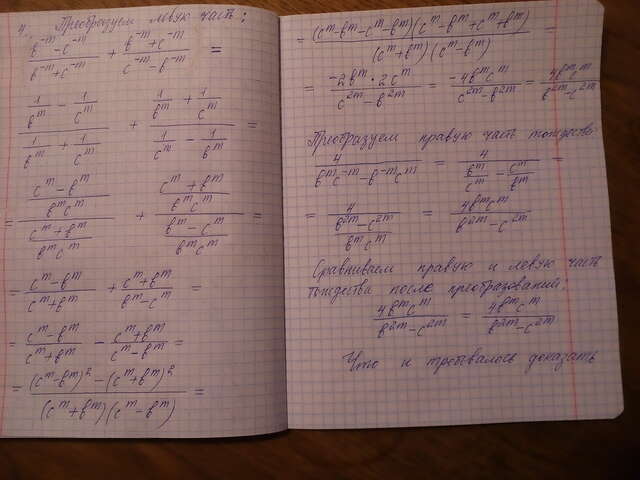 4. Преобразуем левую часть:
(в^-m − c^-m)/(в^-m + c^-m) + (в^-m + c^-m)/(c^-m − в^-m) =
(1/в^m − 1/c^m)/(1/в^m + 1/c^m) + (1/в^m + 1/c^m)/(1/c^m − 1/в^m) =
= ((c^m − в^m)/(в^m c^m))/((c^m + в^m)/(в^m c^m)) + ((c^m + в^m)/(в^m c^m))/((в^m − c^m)/(в^m c^m)) =
= (c^m − в^m)/(c^m + в^m) + (c^m + в^m)/(в^m − c^m) =
= (c^m − в^m)/(c^m + в^m) − (c^m + в^m)/(c^m − в^m) =
= ((c^m − в^m)^2 − (c^m + в^m)^2)/((c^m + в^m)(c^m − в^m)) =
= ((c^m − в^m − c^m − в^m)(c^m − в^m + c^m + в^m))/((c^m + в^m)(c^m − в^m)) =
= (−2в^m · 2c^m)/(c^2m − в^2m) = (−4в^m c^m)/(c^2m − в^2m) = (4в^m c^m)/(в^2m − c^2m)
Преобразуем правую часть тождества
4/(в^m c^-m − в^-m c^m) = 4/(в^m/c^m − c^m/в^m) =
= 4/((в^2m − c^2m)/(в^m c^m)) = (4в^m c^m)/(в^2m − c^2m)
Сравниваем правую и левую часть
тождества после преобразований:
(4в^m c^m)/(в^2m − c^2m) = (4в^m c^m)/(в^2m − c^2m)
Что и требовалось доказать